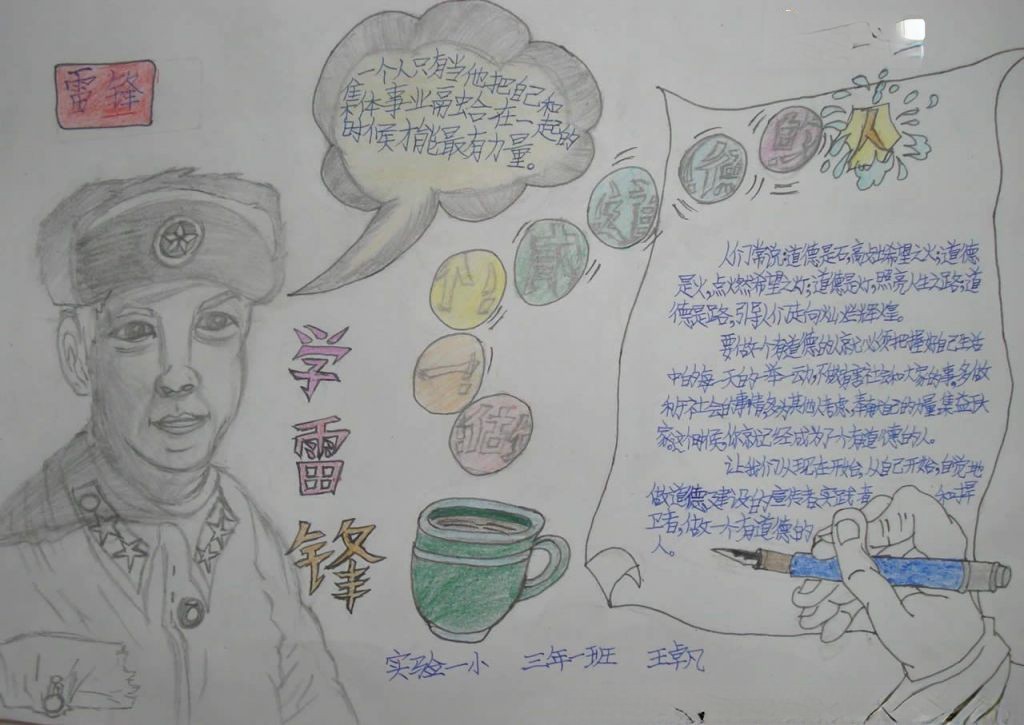 雷锋
一个人只有当他把自己和
集体事业融合在一起的
时候才能最有力量。
学雷锋
做一个有道德的人
人们常说:道德是石,敲出希望之火;道德
是火,点燃希望之灯;道德是灯,照亮人生之路;道
德是路,引导人们走向灿烂辉煌。
要做一个有道德的人就必须把握好自己生活
中的每一天的一举一动,不做有害社会和大家的事。多做
利于社会的事情,多为其他人考虑,奉献自己的力量,
家。这个时候,你就已经成为了一个有道德的人。
让我们从现在开始,从自己开始,自觉地
做道德建设的宣传者、实践者 和捍
卫者,做一个有道德的
人。
实验一小 三年一班 王卓凡